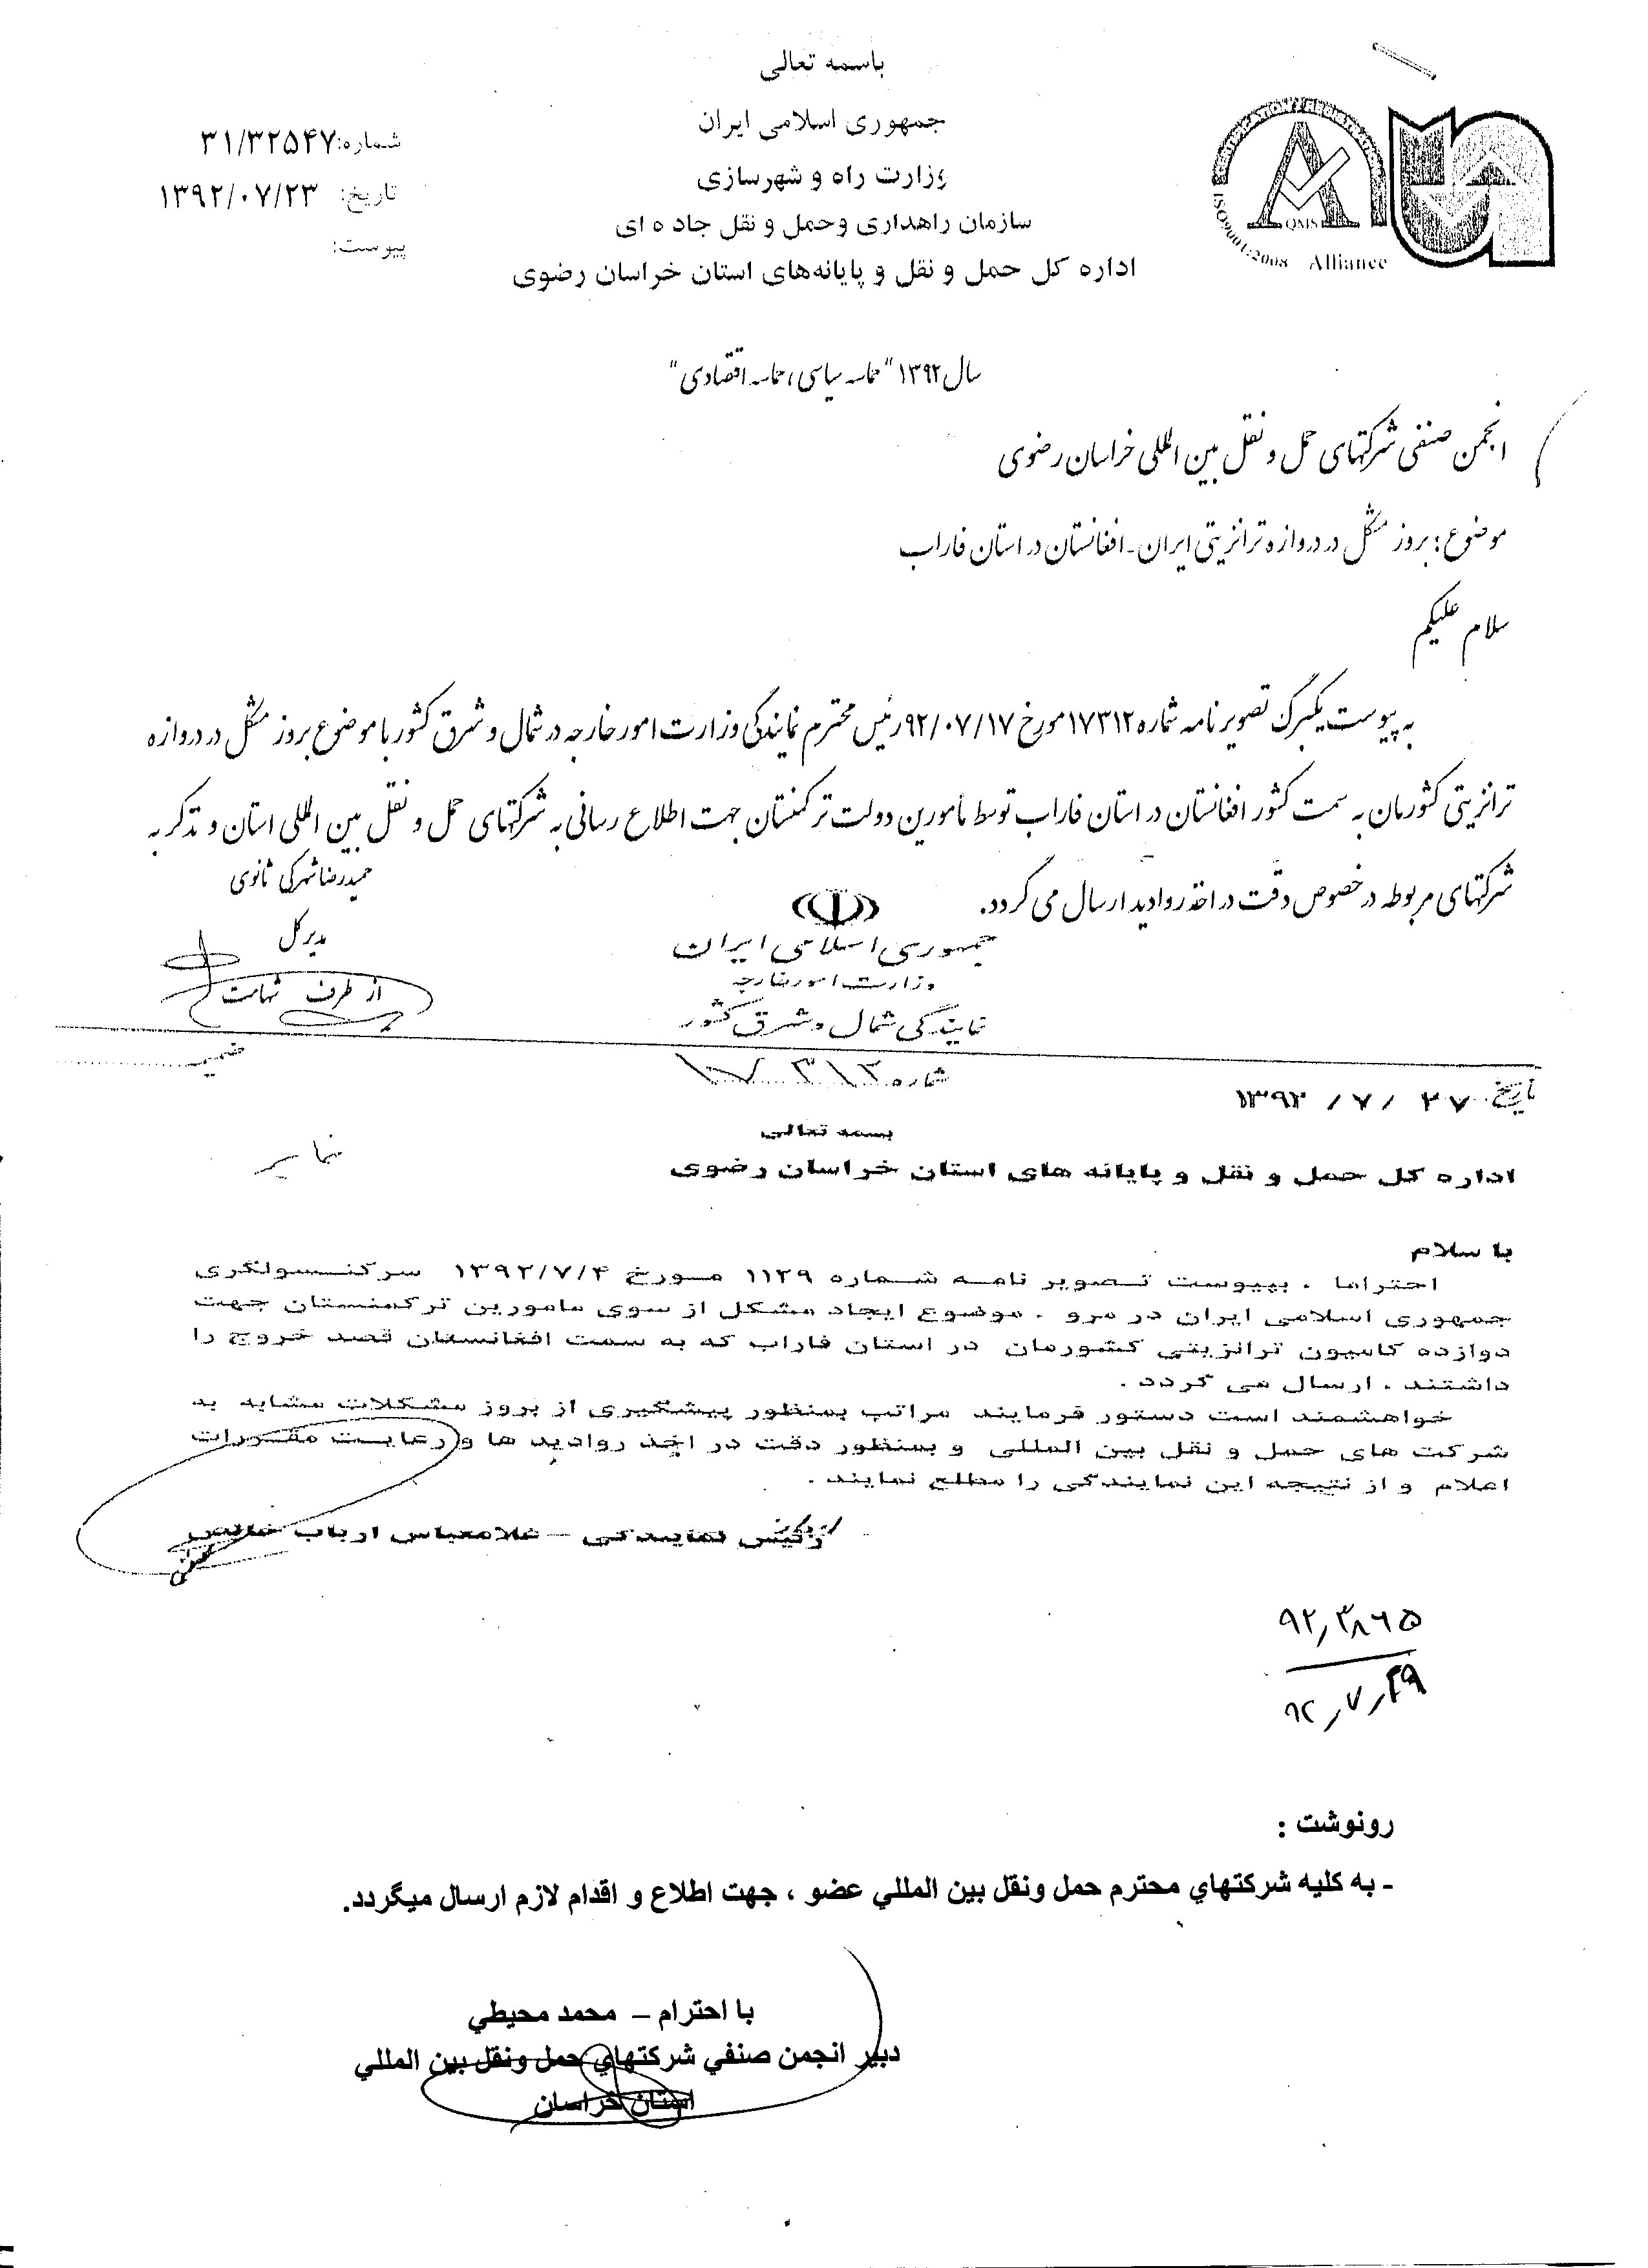 باسمه تعالی
جمهوری اسلامی ایران
وزارت راه و شهرسازی
سازمان راهداری وحمل و نقل جاده ای
اداره کل حمل و نقل و پایانه‌های استان خراسان رضوی
شماره: ۳۱/۳۲۵۴۷
تاریخ: ۱۳۹۲/۰۷/۲۳
پیوست:
ISO9001:2008 Alliance
QMS
سال ۱۳۹۲ "حماسه سیاسی، حماسه اقتصادی"
انجمن صنفی شرکتهای حمل و نقل بین المللی خراسان رضوی
موضوع: بروز مشکل در دروازه ترانزیتی ایران-افغانستان در استان فاراب
سلام علیکم
به پیوست یکبرگ تصویر نامه شماره ۱۷۳۱۲ مورخ ۹۲/۰۷/۱۷ رئیس محترم نمایندگی وزارت امور خارجه در شمال و شرق کشور با موضوع بروز مشکل در دروازه
ترانزیتی کشورمان به سمت کشور افغانستان در استان فاراب توسط مأمورین دولت ترکمنستان جهت اطلاع رسانی به شرکتهای حمل و نقل بین المللی استان و تذکر به
شرکتهای مربوطه در خصوص دقت در اخذ روادید ارسال می گردد.
حمیدرضا شهرکی ثانوی
مدیر کل
از طرف
جمهوری اسلامی ایران
وزارت امور خارجه
نمایندگی شمال و شرق کشور
شماره ۱۷۳۱۲
تاریخ ۲۷ / ۷ / ۱۳۹۲
ضمیمه
بسمه تعالی
نمابر
اداره کل حمل و نقل و پایانه های استان خراسان رضوی
با سلام
احتراما ، بپیوست تصویر نامه شماره ۱۱۲۹ مورخ ۱۳۹۲/۷/۴ سرکنسولگری
جمهوری اسلامی ایران در مرو ، موضوع ایجاد مشکل از سوی مامورین ترکمنستان جهت
دوازده کامیون ترانزیتی کشورمان در استان فاراب که به سمت افغانستان قصد خروج را
داشتند ، ارسال می گردد .
خواهشمند است دستور فرمایند مراتب بمنظور پیشگیری از بروز مشکلات مشابه به
شرکت های حمل و نقل بین المللی و بمنظور دقت در اخذ روادید ها و رعایت مقررات
اعلام و از نتیجه این نمایندگی را مطلع نمایند .
رئیس نمایندگی – غلامعباس ارباب خالص
۹۲٫۳۸۶۵
۹۲٫۷٫۲۹
رونوشت :
- به کلیه شرکتهاي محترم حمل ونقل بین المللي عضو ، جهت اطلاع و اقدام لازم ارسال میگردد.
با احترام – محمد محیطي
دبیر انجمن صنفي شرکتهاي حمل ونقل بین المللي
استان خراسان